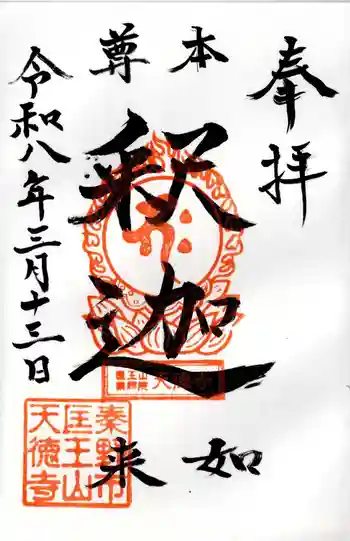 奉拝
本尊
釈迦
如来
令和八年三月十三日
天徳寺
秦野市
匡王山
天徳寺